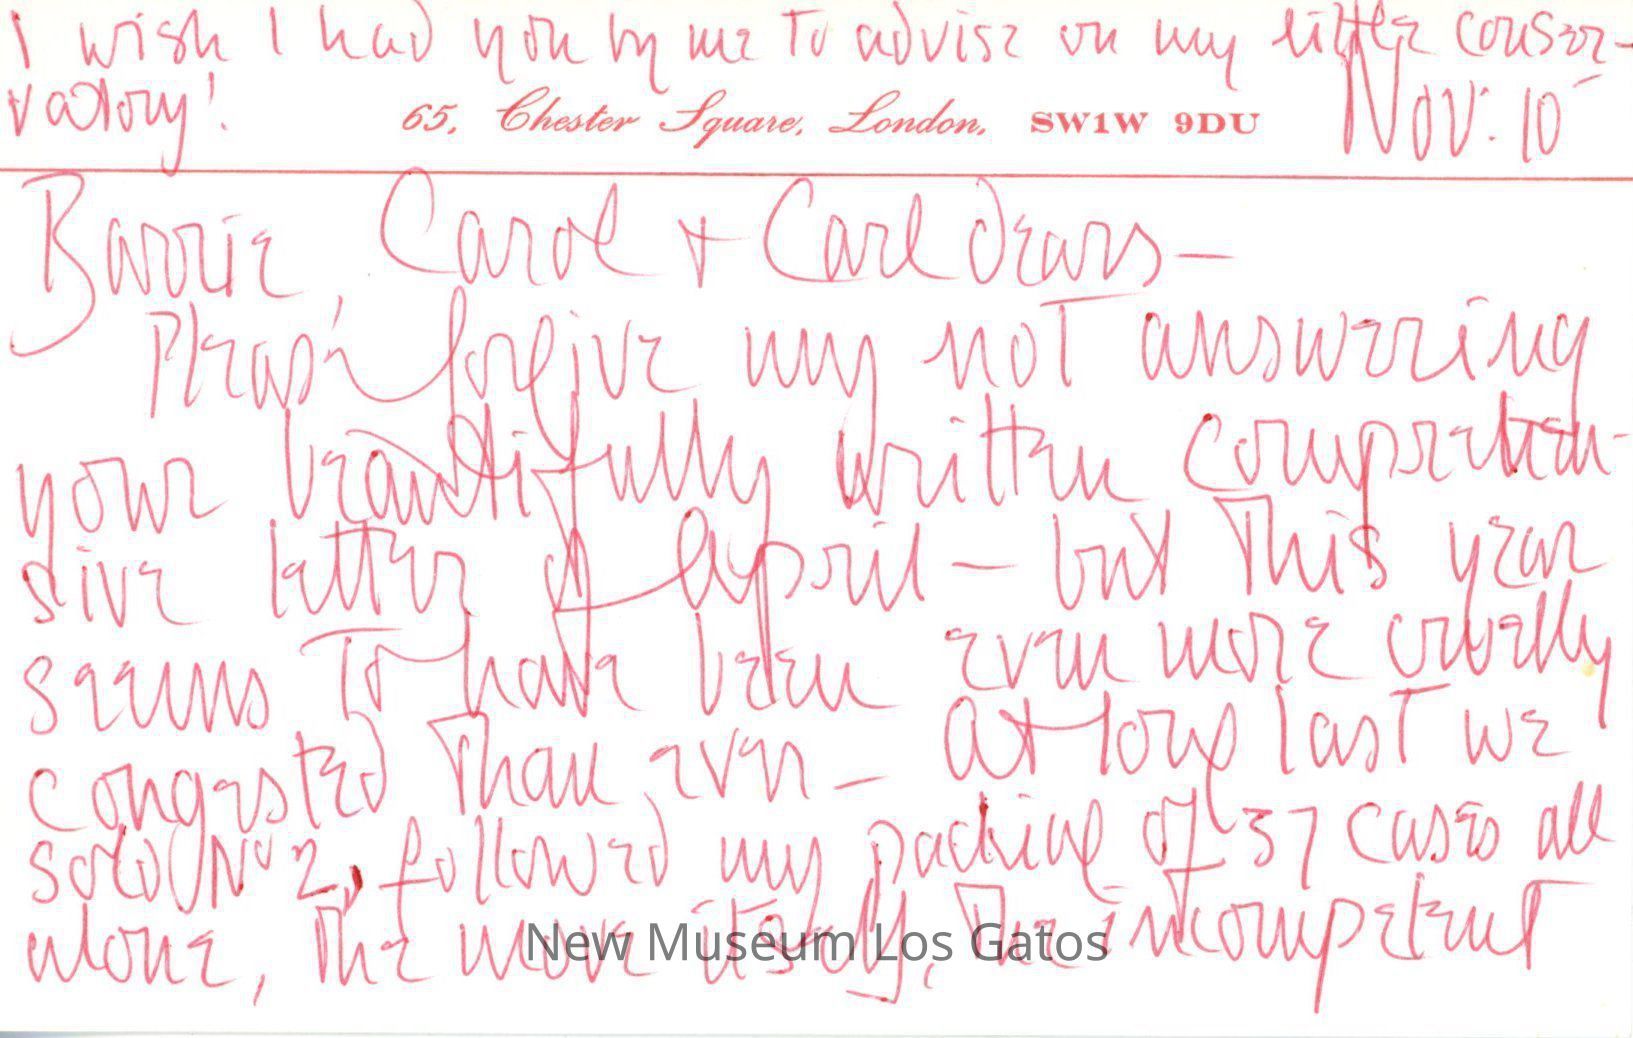 I wish I had you by me to advise on my little conser-
vatory!
65, Chester Square, London, SW1W 9DU
Nov: 10
Barrie, Carol + Carl dears —
Please forgive my not answering
your beautifully written comprehen-
sive letter of April — but this year
seems to have been even more cruelly
congested than ever — At long last we
sold No 2, followed my packing of 37 cases all
alone, the move itself, the incompetent
New Museum Los Gatos